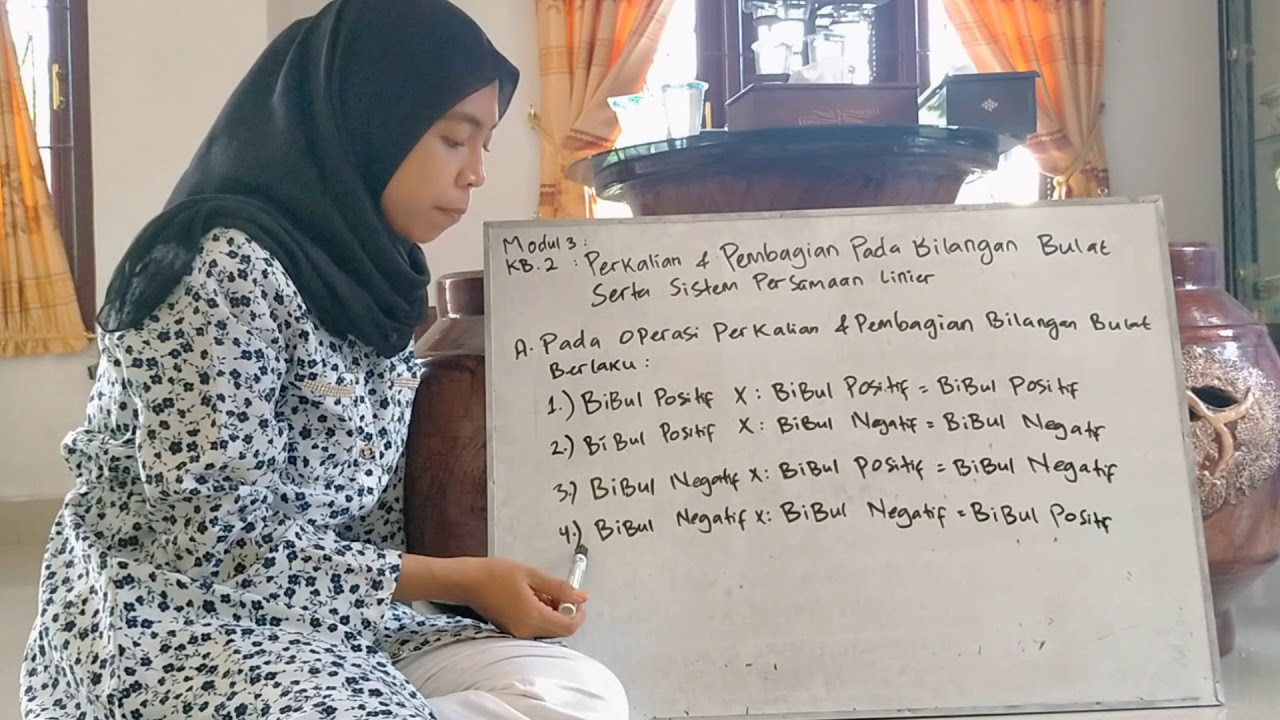 Modul 3 :
KB. 2 : Perkalian & Pembagian Pada Bilangan Bulat
Serta Sistem Persamaan Linier
A. Pada Operasi Perkalian & Pembagian Bilangan Bulat
Berlaku :
1.) BiBul Positif X : BiBul Positif = BiBul Positif
2.) BiBul Positif X : BiBul Negatif = BiBul Negatif
3.) BiBul Negatif X : BiBul Positif = BiBul Negatif
4.) BiBul Negatif X : BiBul Negatif = BiBul Positif